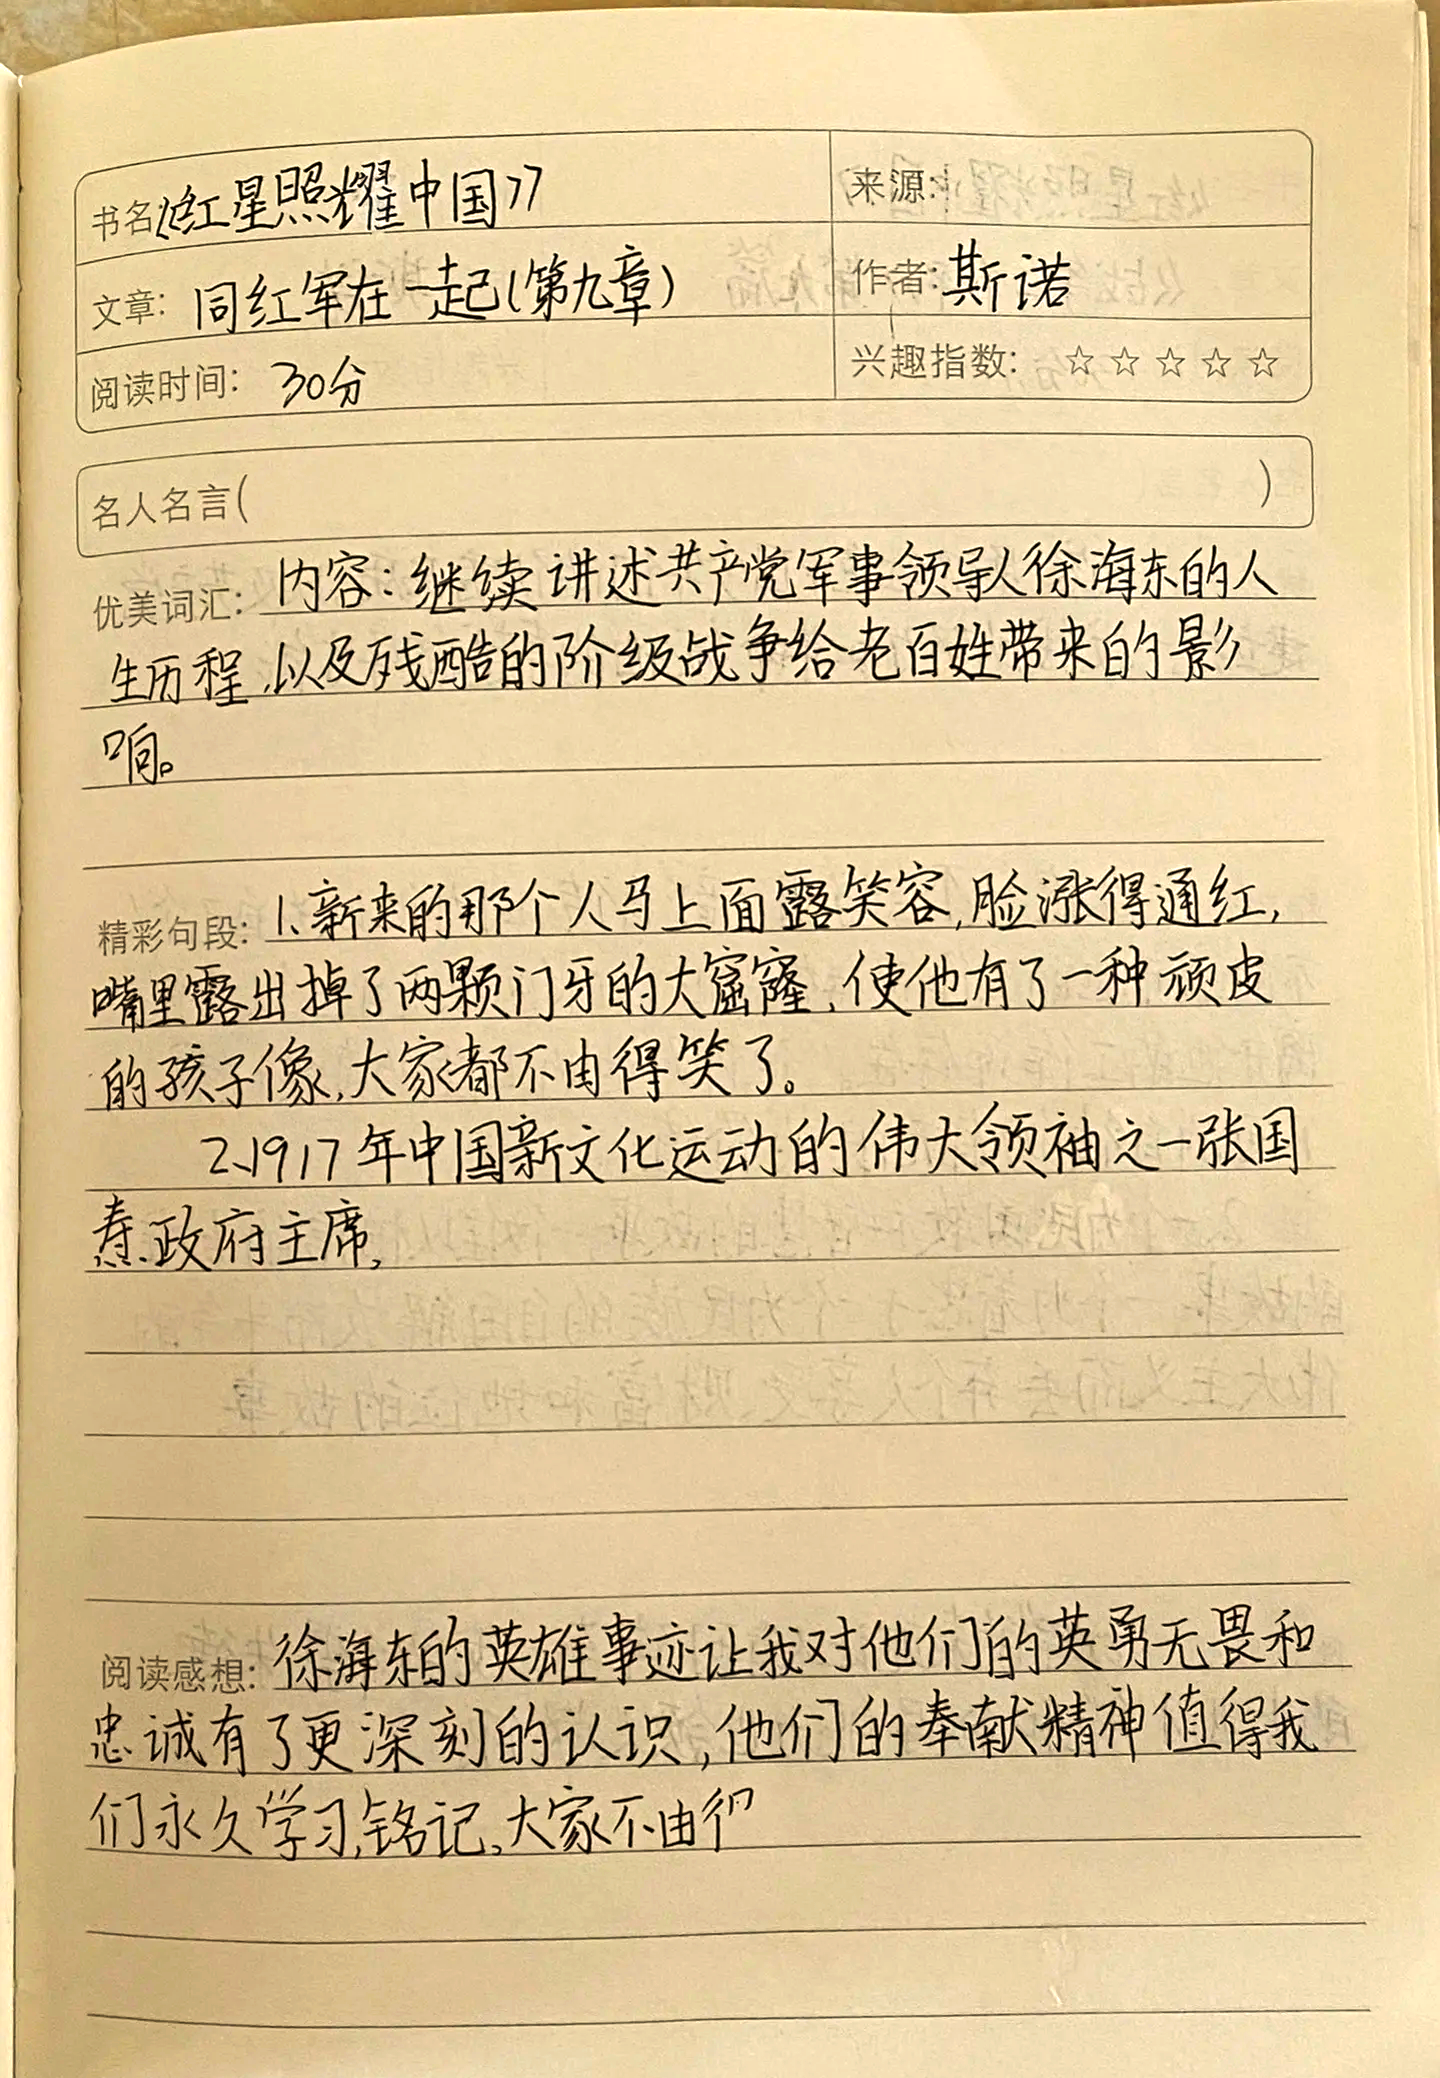 书名:《红星照耀中国》
来源:
文章: 同红军在一起(第九章)
作者: 斯诺
阅读时间: 30分
兴趣指数: ☆ ☆ ☆ ☆ ☆
名人名言( )
优美词汇: 内容:继续讲述共产党军事领导人徐海东的人
生历程,以及残酷的阶级战争给老百姓带来的影
响。
精彩句段: 1、新来的那个人马上面露笑容,脸涨得通红,
嘴里露出掉了两颗门牙的大窟窿,使他有了一种顽皮
的孩子像,大家都不由得笑了。
2、1917年中国新文化运动的伟大领袖之一张国
焘、政府主席,
阅读感想: 徐海东的英雄事迹让我对他们的英勇无畏和
忠诚有了更深刻的认识,他们的奉献精神值得我
们永久学习,铭记。大家不由